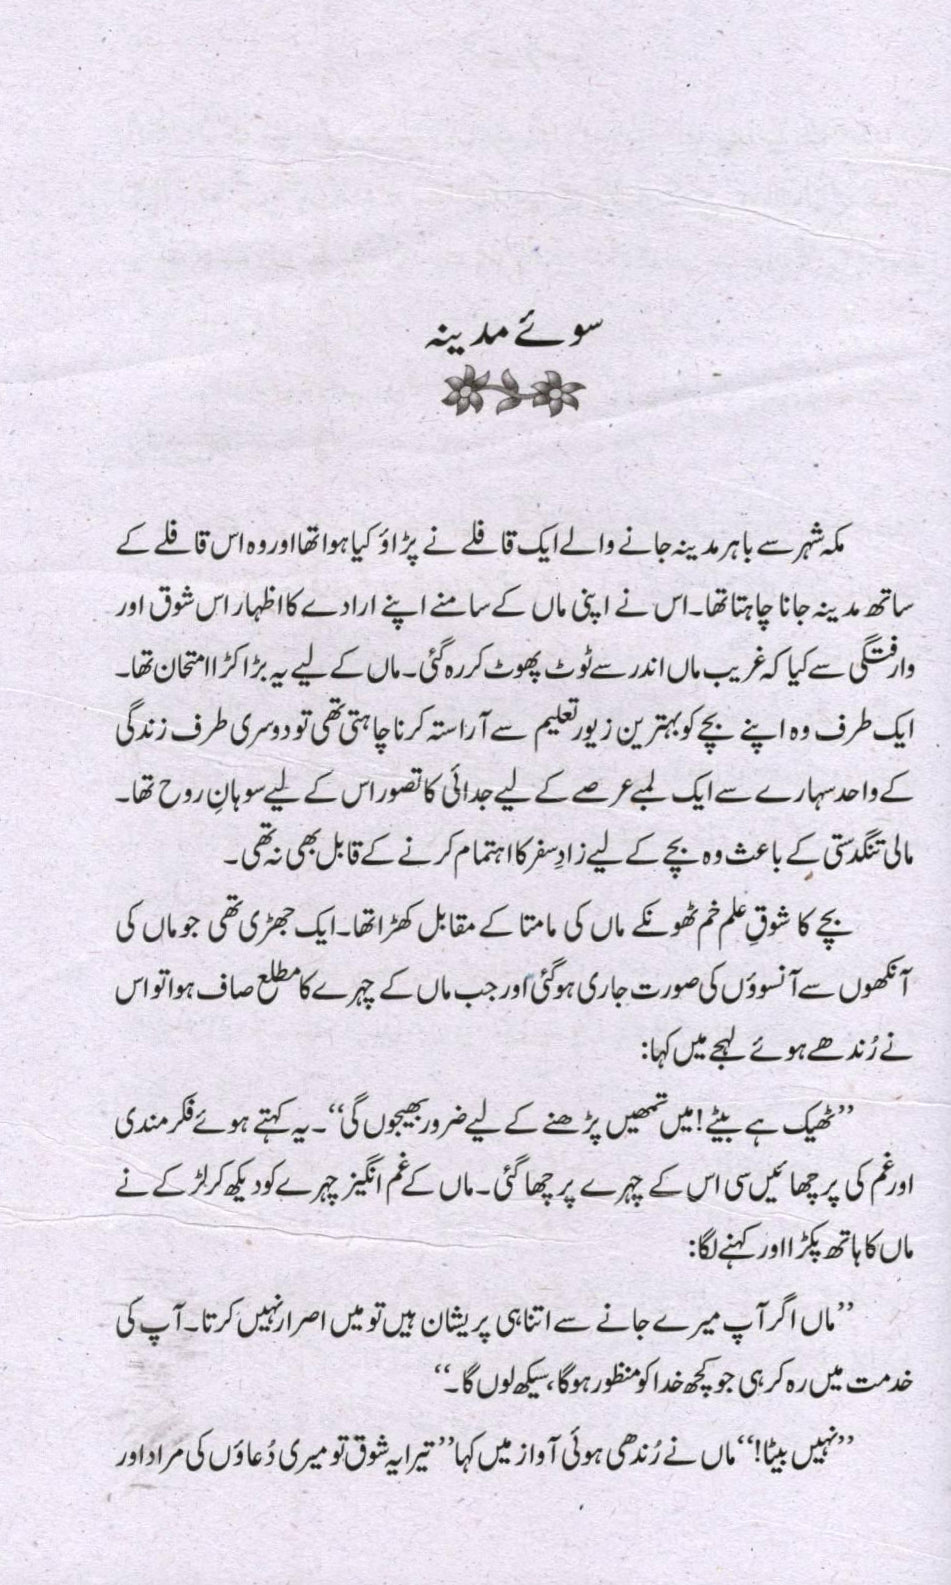 سوئے مدینہ
مکہ شہر سے باہر مدینہ جانے والے ایک قافلے نے پڑاؤ کیا ہوا تھا اور وہ اس قافلے کے
ساتھ مدینہ جانا چاہتا تھا۔ اس نے اپنی ماں کے سامنے اپنے ارادے کا اظہار اس شوق اور
وارفتگی سے کیا کہ غریب ماں اندر سے ٹوٹ پھوٹ کر رہ گئی۔ ماں کے لیے یہ بڑا کڑا امتحان تھا۔
ایک طرف وہ اپنے بچے کو بہترین زیور تعلیم سے آراستہ کرنا چاہتی تھی تو دوسری طرف زندگی
کے واحد سہارے سے ایک لمبے عرصے کے لیے جدائی کا تصور اس کے لیے سوہانِ روح تھا۔
مالی تنگدستی کے باعث وہ بچے کے لیے زادِ سفر کا اہتمام کرنے کے قابل بھی نہ تھی۔
بچے کا شوقِ علم خم ٹھونکے ماں کی مامتا کے مقابل کھڑا تھا۔ ایک جھڑی تھی جو ماں کی
آنکھوں سے آنسوؤں کی صورت جاری ہو گئی اور جب ماں کے چہرے کا مطلع صاف ہوا تو اس
نے رُندھے ہوئے لہجے میں کہا:
”ٹھیک ہے بیٹے! میں تمھیں پڑھنے کے لیے ضرور بھیجوں گی“۔ یہ کہتے ہوئے فکر مندی
اور غم کی پرچھائیں سی اس کے چہرے پر چھا گئی۔ ماں کے غم انگیز چہرے کو دیکھ کر لڑکے نے
ماں کا ہاتھ پکڑا اور کہنے لگا:
”ماں اگر آپ میرے جانے سے اتنا ہی پریشان ہیں تو میں اصرار نہیں کرتا۔ آپ کی
خدمت میں رہ کر ہی جو کچھ خدا کو منظور ہوگا، سیکھ لوں گا۔“
”نہیں بیٹا!“ ماں نے رُندھی ہوئی آواز میں کہا ”تیرا یہ شوق تو میری دُعاؤں کی مراد اور